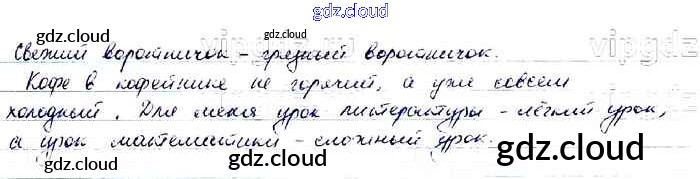 gdz.cloud
gdz.cloud
Свежий воротничок - грязный воротничок.
vipgdz
Кофе в кофейнике не горячий, а уже совсем
холодный. Для меня урок литературы - лёгкий урок,
gdz.cloud
а урок математики - сложный урок.
gdz.cloud
gdz.cloud
gdz.cloud